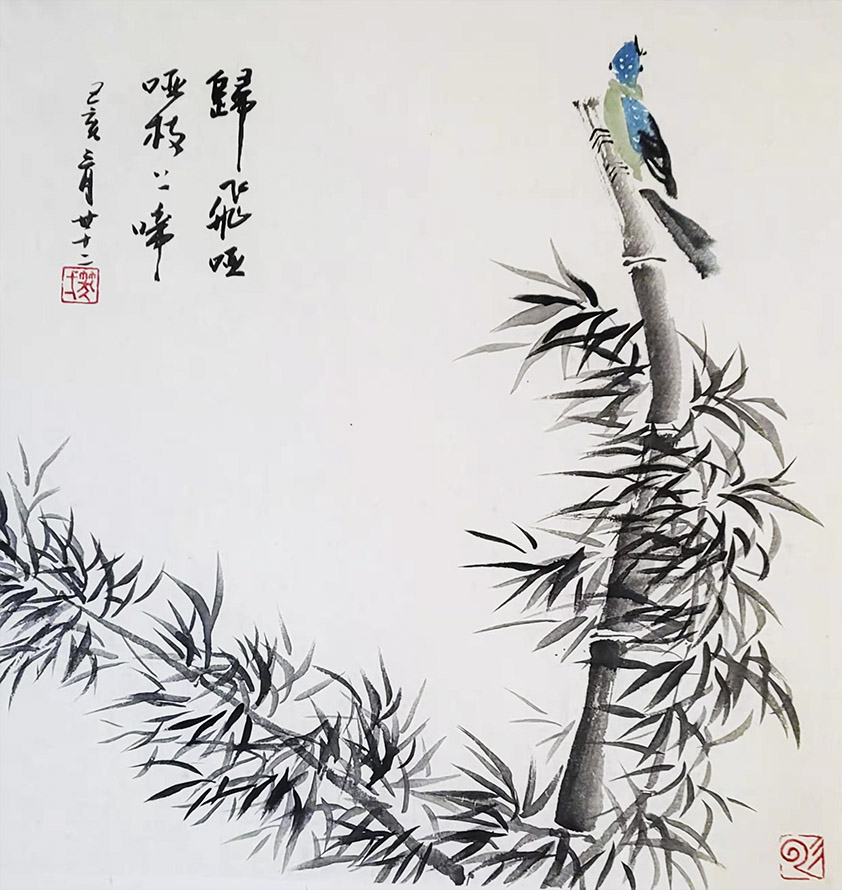 歸飛啞
啞枝上啼
己亥三月廿十二